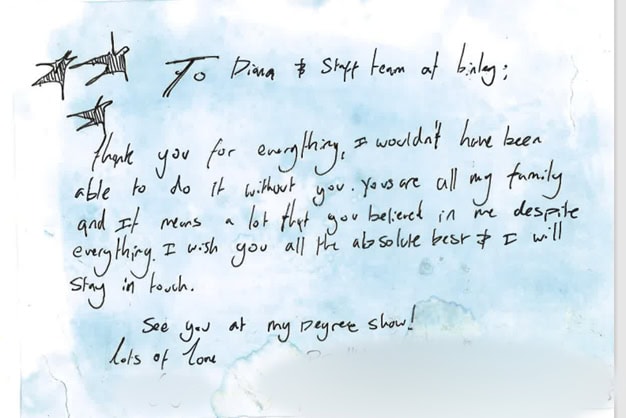 To Diana & Staff team at binley;
thank you for everything, I wouldn't have been
able to do it without you. Yous are all my family
and It means a lot that you believed in me despite
everything. I wish you all the absolute best & I will
stay in touch.
See you at my Degree show!
lots of love